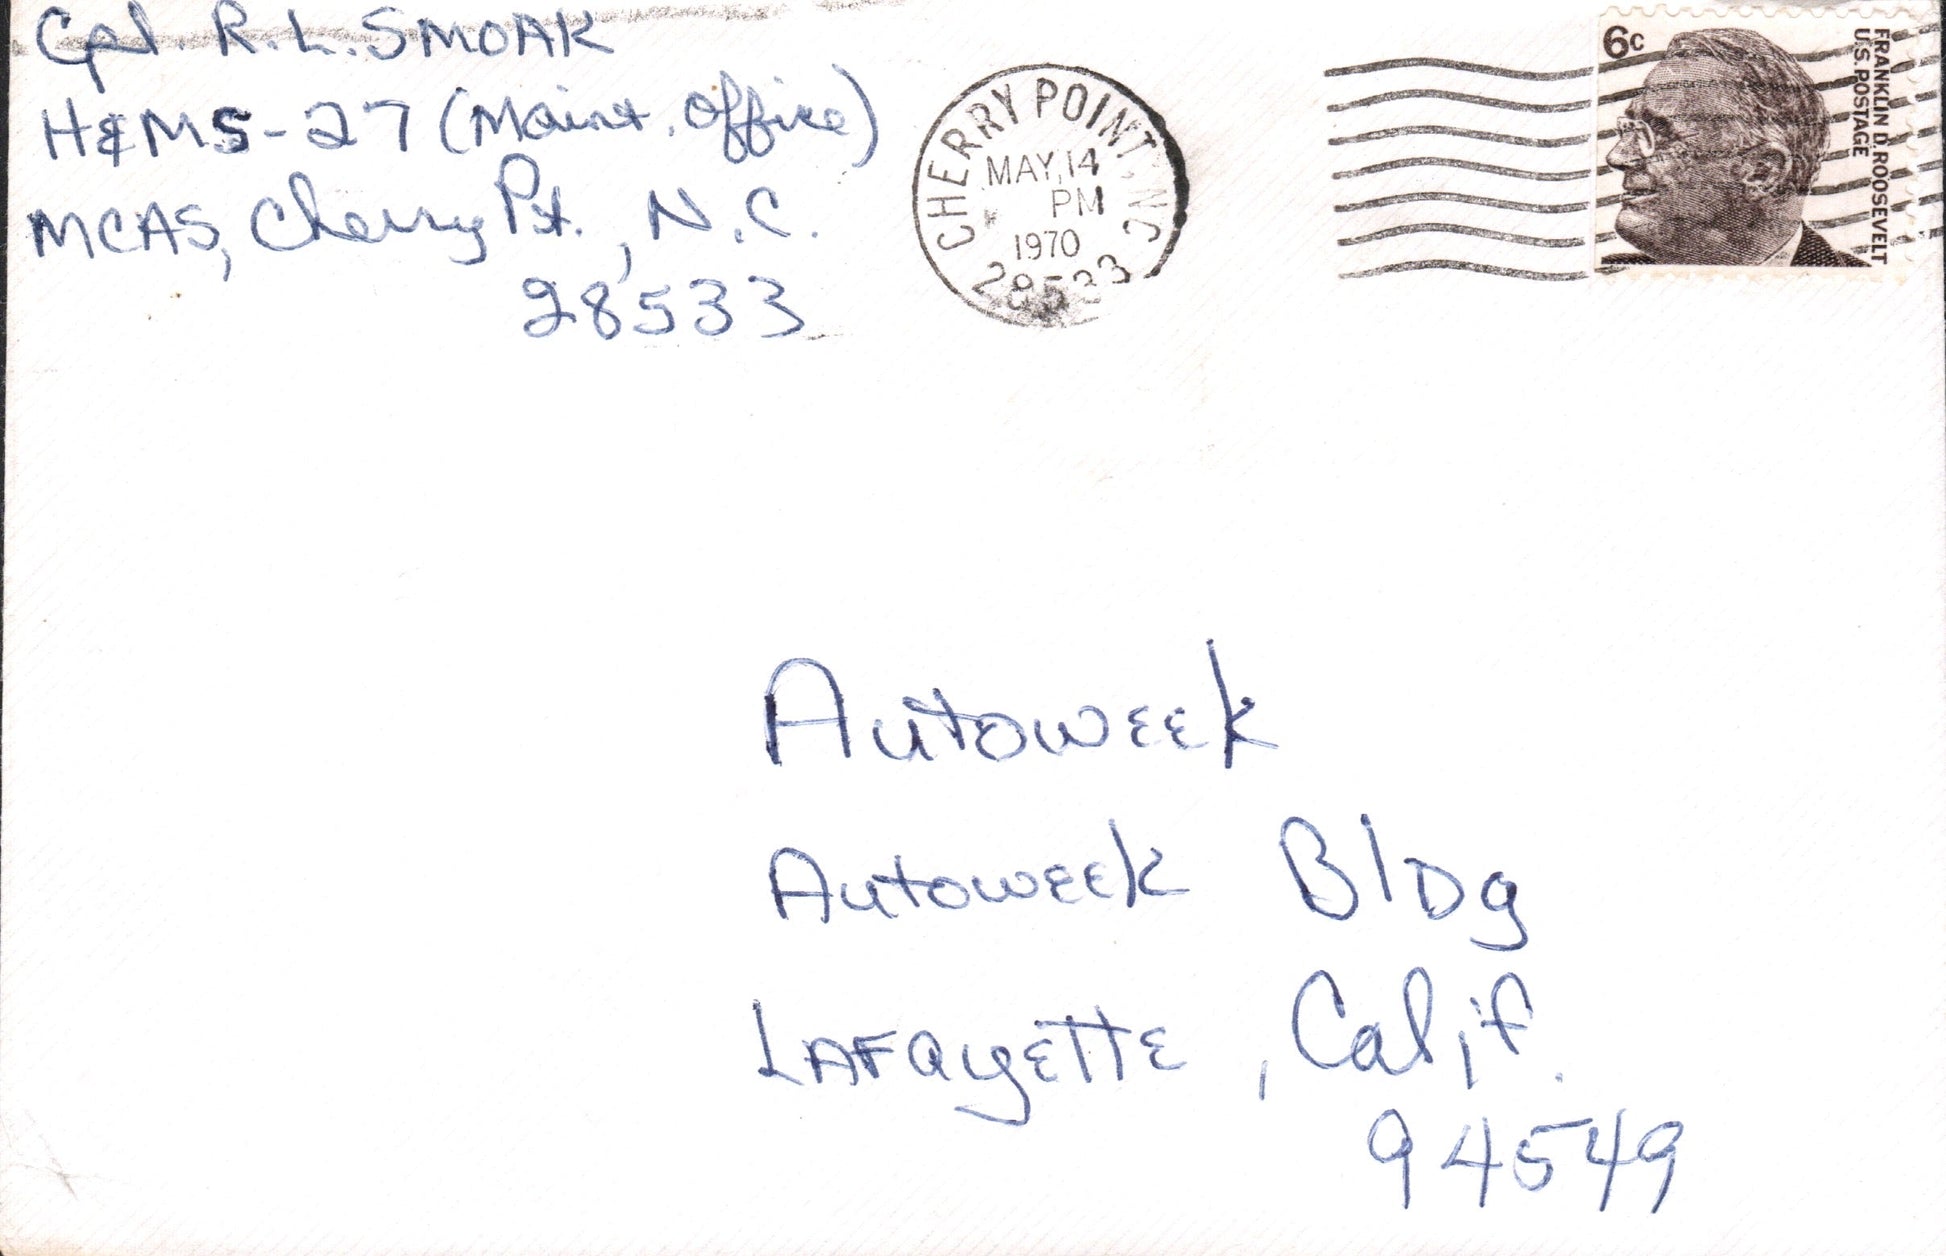 Cpl. R. L. SMOAK
H&MS-27 (Maint. Office)
MCAS, Cherry Pt., N.C.
28533
CHERRY POINT, NC
MAY 14
PM
1970
28533
6c
FRANKLIN D. ROOSEVELT
U.S. POSTAGE
Autoweek
Autoweek Bldg
Lafayette, Calif.
94549